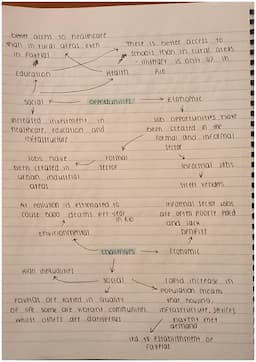 better access to healthcare
than in rural areas, even
in favelas
There is better access to
schools than in rural areas
- illiteracy is only in
Rio
Education
Health
Social
opportunities
Economic
Increased investment in
healthcare, education and
infrastructure
Job opportunities have
been created in the
formal and informal
sector
Jobs have
been created in
urban industrial
areas
formal
sector
informal jobs
street vendors
Air pollution is estimated to
cause 5000 deaths per year
in Rio
Informal sector jobs
are often poorly paid
and lack
benefits
Environmental
challenges
Economic
High inequalities
Social
rapid increase in
population means
that housing,
infrastructure, services
haven't met
demand
favelas are varied in quality
of life. some are vibrant communities
whilst others are dangerous
led to establishment of
favelas